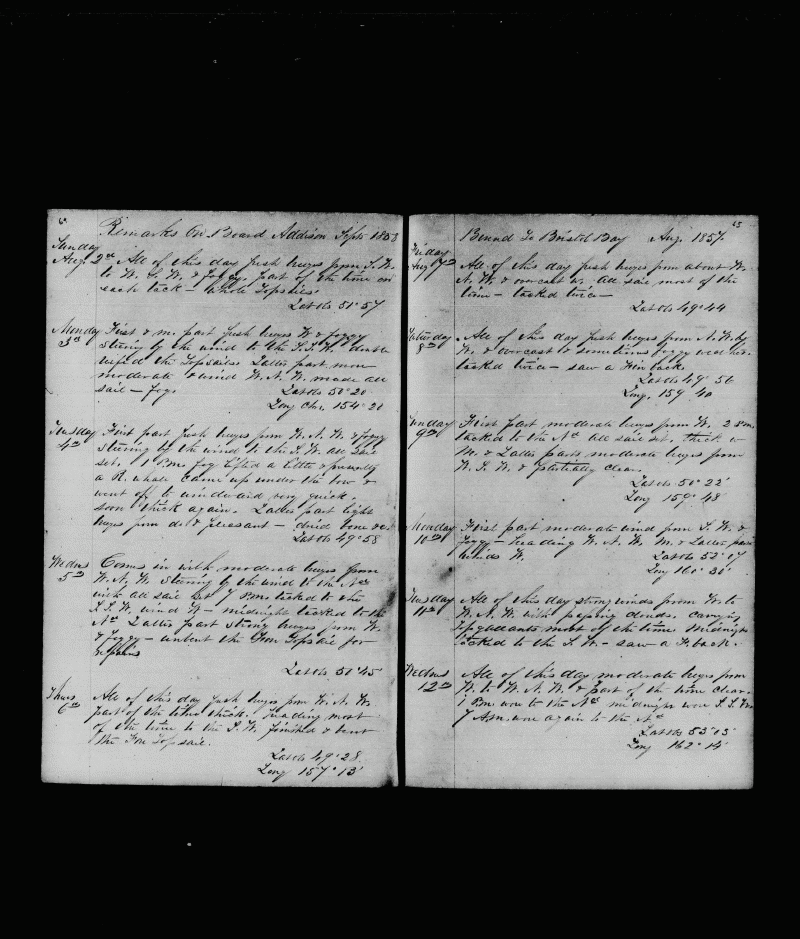 Remarks on Board Addison Sept 1853
Sunday
Aug 2nd All of this day fresh breezes from S. W.
to W. S. W. & foggy part of the time on
each tack — whole Topsails
Lat obs 51° 57
Monday
3rd First & m. part fresh breezes W & foggy
stering by the wind to the S. S. W. double
reefed the Topsailes Latter part more
moderate & wind W. N. W. made all
sail — fog. Lat obs 50° 20
Long Chr. 154° 20
Tuesday
4th First part fresh breezes from W. N. W. & foggy
stering by the wind to the S. W. all sail
set. 1 P.m. fog lifted a little & presently
a R. whale came up under the bow &
went off to windward very quick.
soon thick again. Latter part light
breezes from do & pleasant — dried bone &c.
Lat obs 49° 58
Wednes
5th Comes in with moderate breezes from
W. N. W. stering by the wind to the Nd
with all sail set 7 P.m. tacked to the
S. S. W. wind W — midnight tacked to the
Nd Latter part strong breezes from W.
& foggy — unbent the Fore Topsail for
repairs
Lat obs 50° 45
Thurs
6th All of this day fresh breezes from W. N. W.
part of the time thick. heading most
of the time to the S. W. finished & bent
the Fore Topsail.
Lat obs 49° 28
Long 157° 13'
65
Bound To Bristol Bay Aug. 1857.
Friday
Aug 7th All of this day fresh breezes from about W.
N. W. & overcast w. all sail most of the
time — tacked twice —
Lat obs 49° 44
Saturday
8th All of this day fresh breezes from N. W. by
W. & overcast & sometimes foggy weather.
tacked twice — saw a Finback
Lat obs 49° 56
Long. 159° 40
Sunday
9th First part moderate breezes from W. 2 P.m.
tacked to the Nd all sail set. thick w
M. & Latter parts moderate breezes from
W. S. W. & partially clear.
Lat obs 50° 22'
Long 159° 48'
Monday
10th First part moderate wind from S. W. &
foggy — heading W. N. W. M. & Latter part
winds W. Lat obs 52° 07
Long 160° 30'
Tuesday
11th All of this day strong winds from W. to
W. N. W. with passing clouds. carrying
Topgallants most of the time Midnight
tacked to the S. W. — saw a F. back.
Wednes
12th All of this day moderate breezes from
W. to W. N. W. & part of the time clear.
1 P.m. wore to the Nd midnight wore S. S. W.
7 A.m. wore again to the Nd
Lat obs 53° 03'
Long 162° 14'